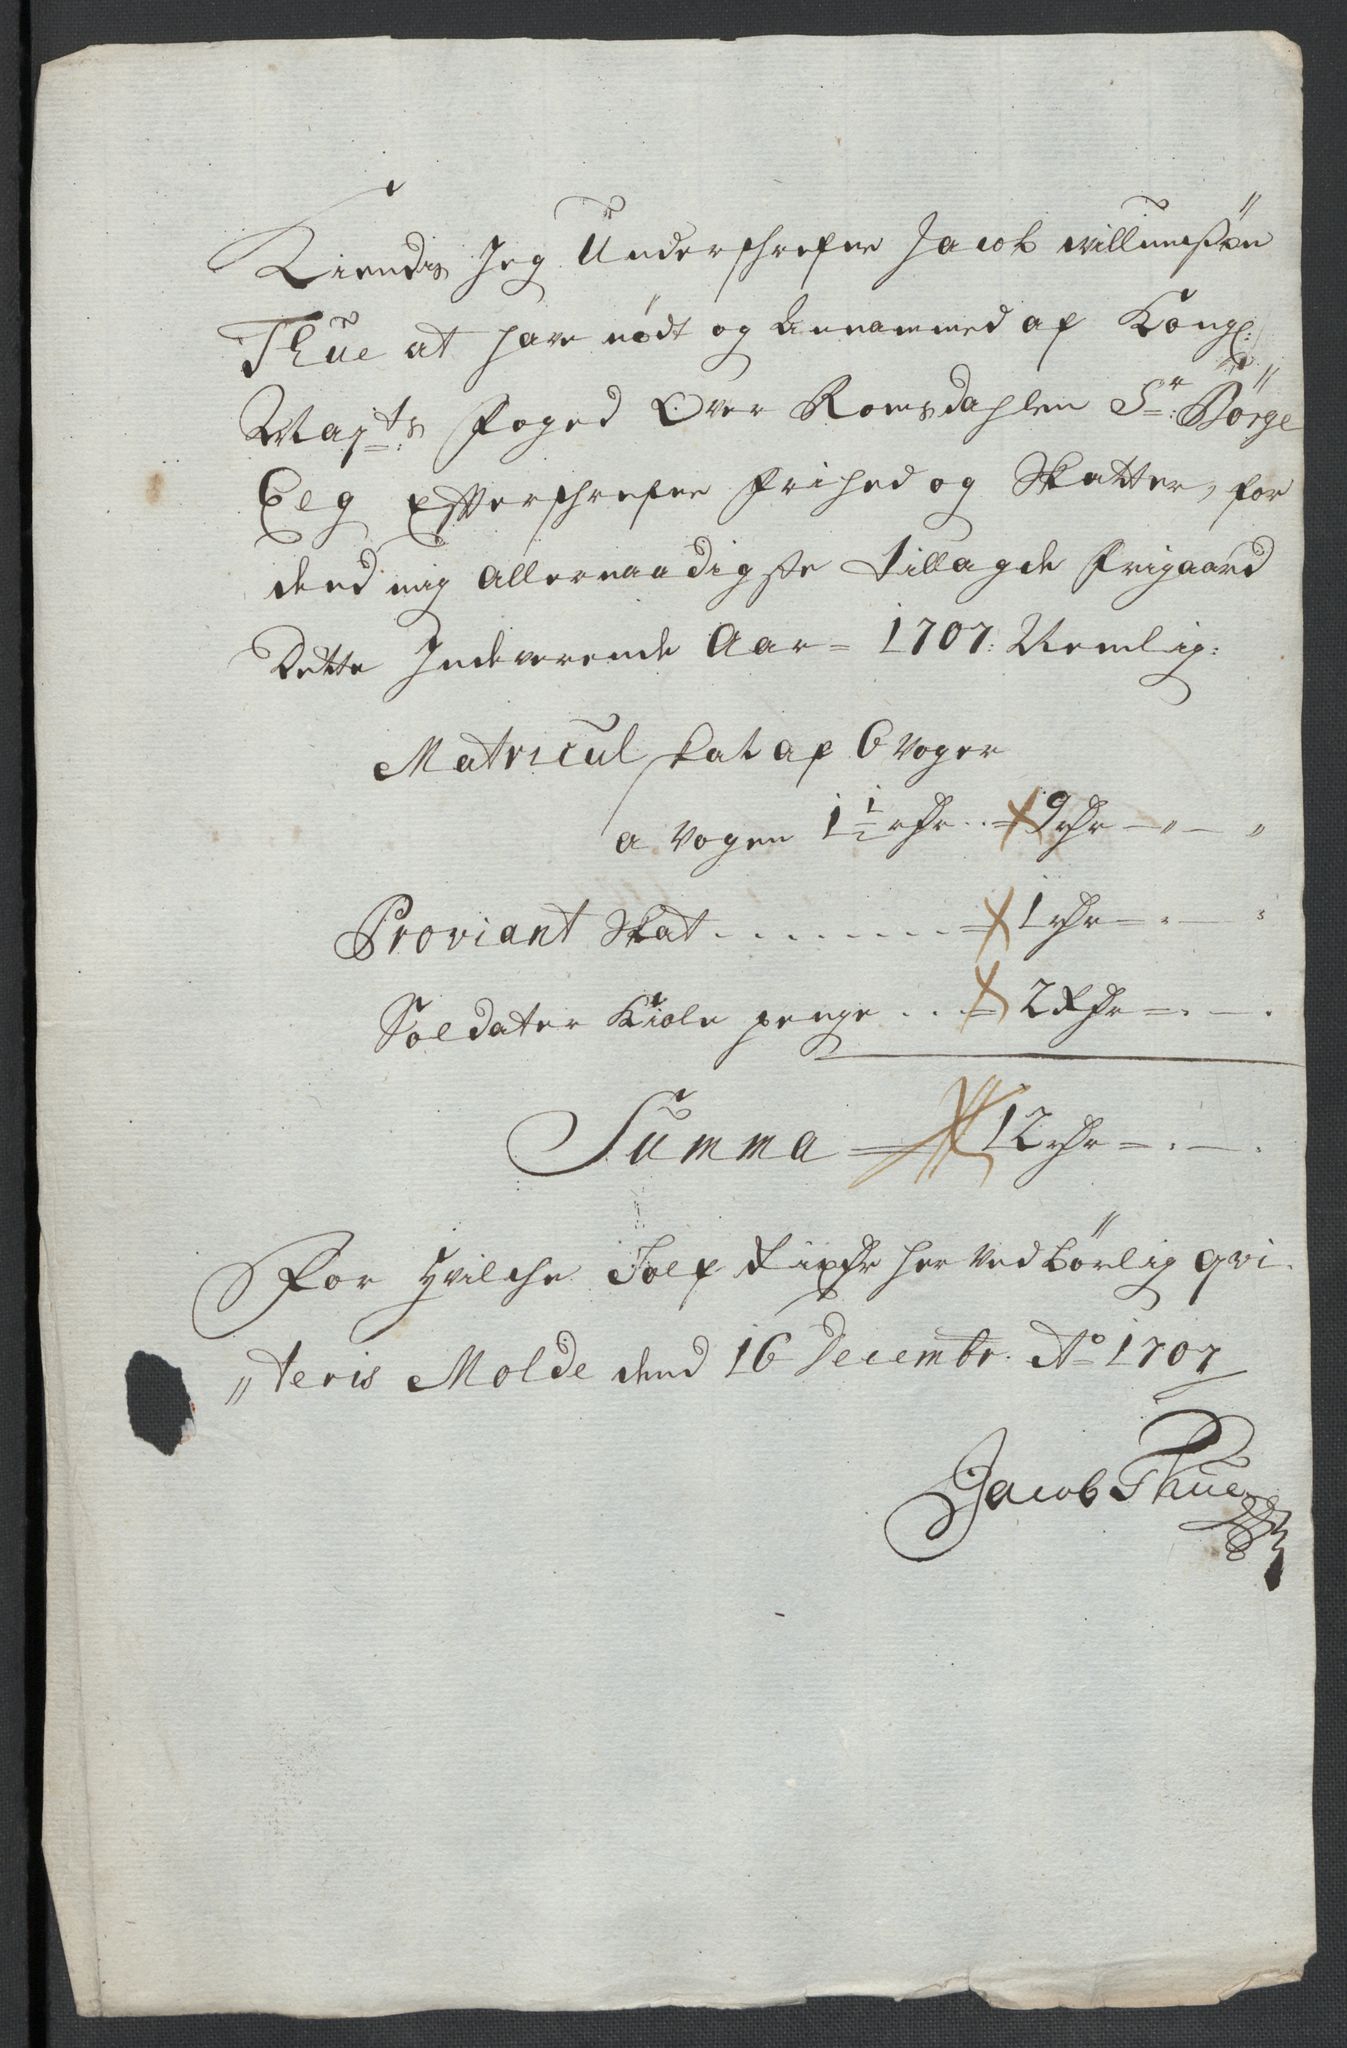 Kiendis Jeg Underschrefne Jacob Willumssøn
Thue at have nødt og Annammed af Kongl:
Mayts: Foged Over Romsdahlen Sr: Børge
Eeg Efterschrefne Frihed og Skatter, for
dend mig Allernaadigste tillagde Frigaard
Dette Indeværende Aar = 1707: Nemlig:
Matricul skat af 6 Voger
a Vogen 1 1/2 rdr .. = 9 rdr — " — "
Proviant Skat . . . . . . . . = 1 rdr — . — "
Soldater Kiole penge . . . = 2 Rdr — . — .
Summa = 12 rdr — . — .
For hvilche Tolf Rixdr her ved børlig qvi-
"teris Molde dend 16 Decembr. Ao 1707
Jacob Thue